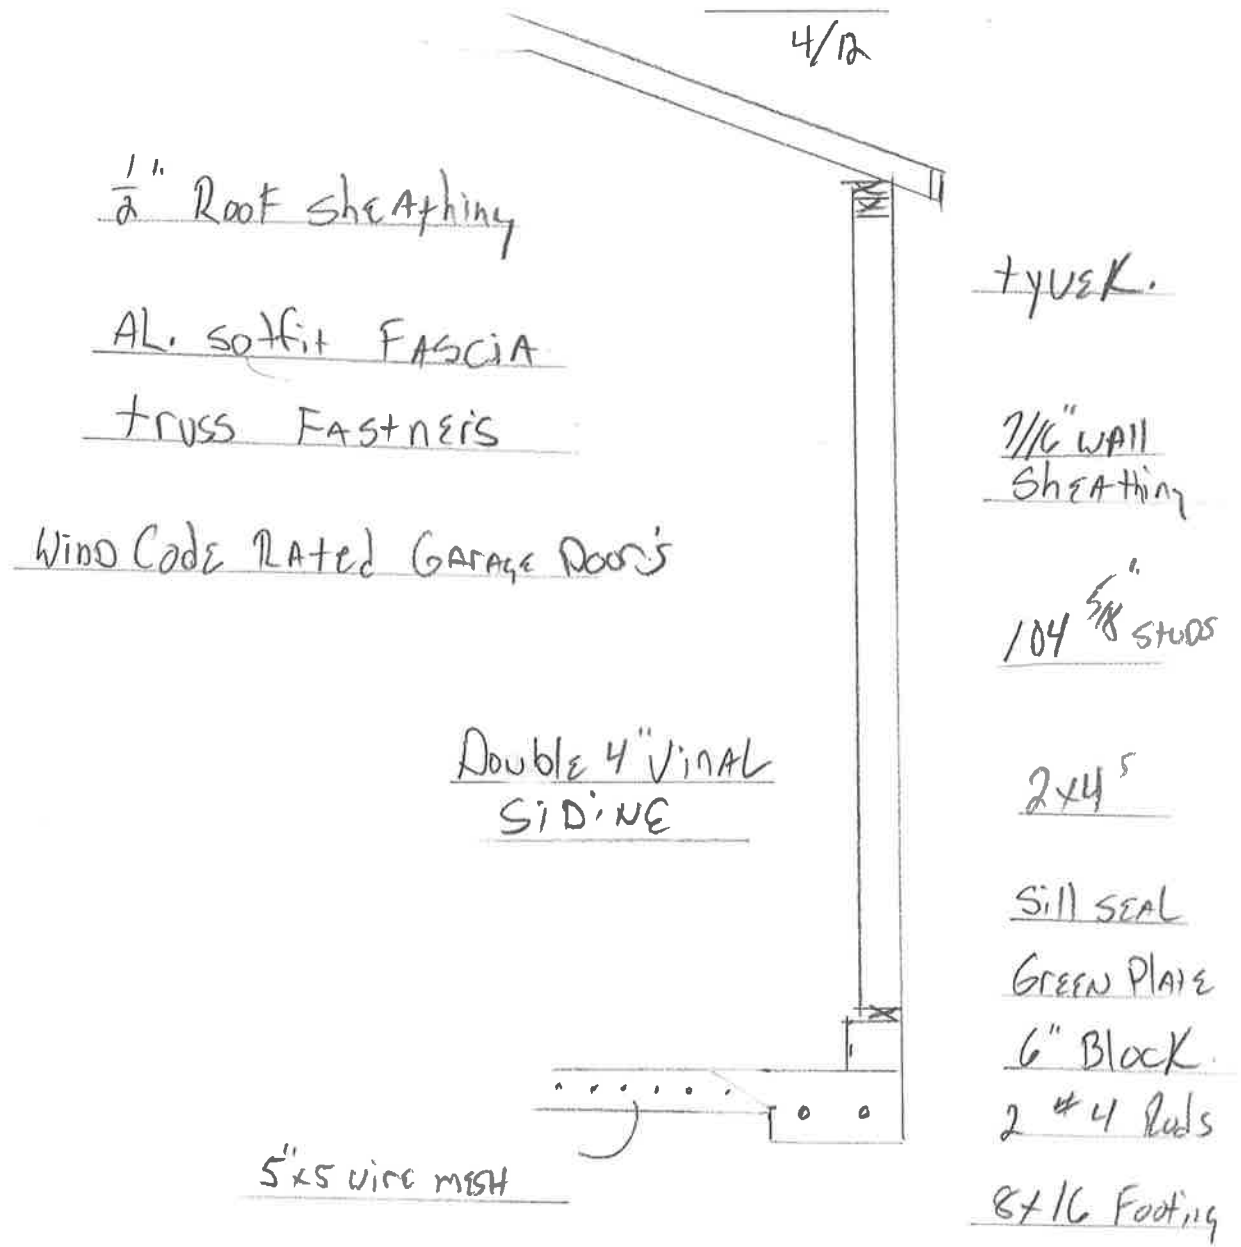 4/12
1/2" Roof sheAthing
AL. soffit FASCiA
truss FAStnErs
WinD CodE RAted GArAgE Door's
DoublE 4" VinAL
SiDiNG
5"x5 wirE mESH
tyvEK.
7/16" WAll
ShEAthing
104 5/8" StuDS
2x4s
Sill SEAL
GrEEN PlAtE
6" BlocK.
2 #4 Rods
8x16 Footing